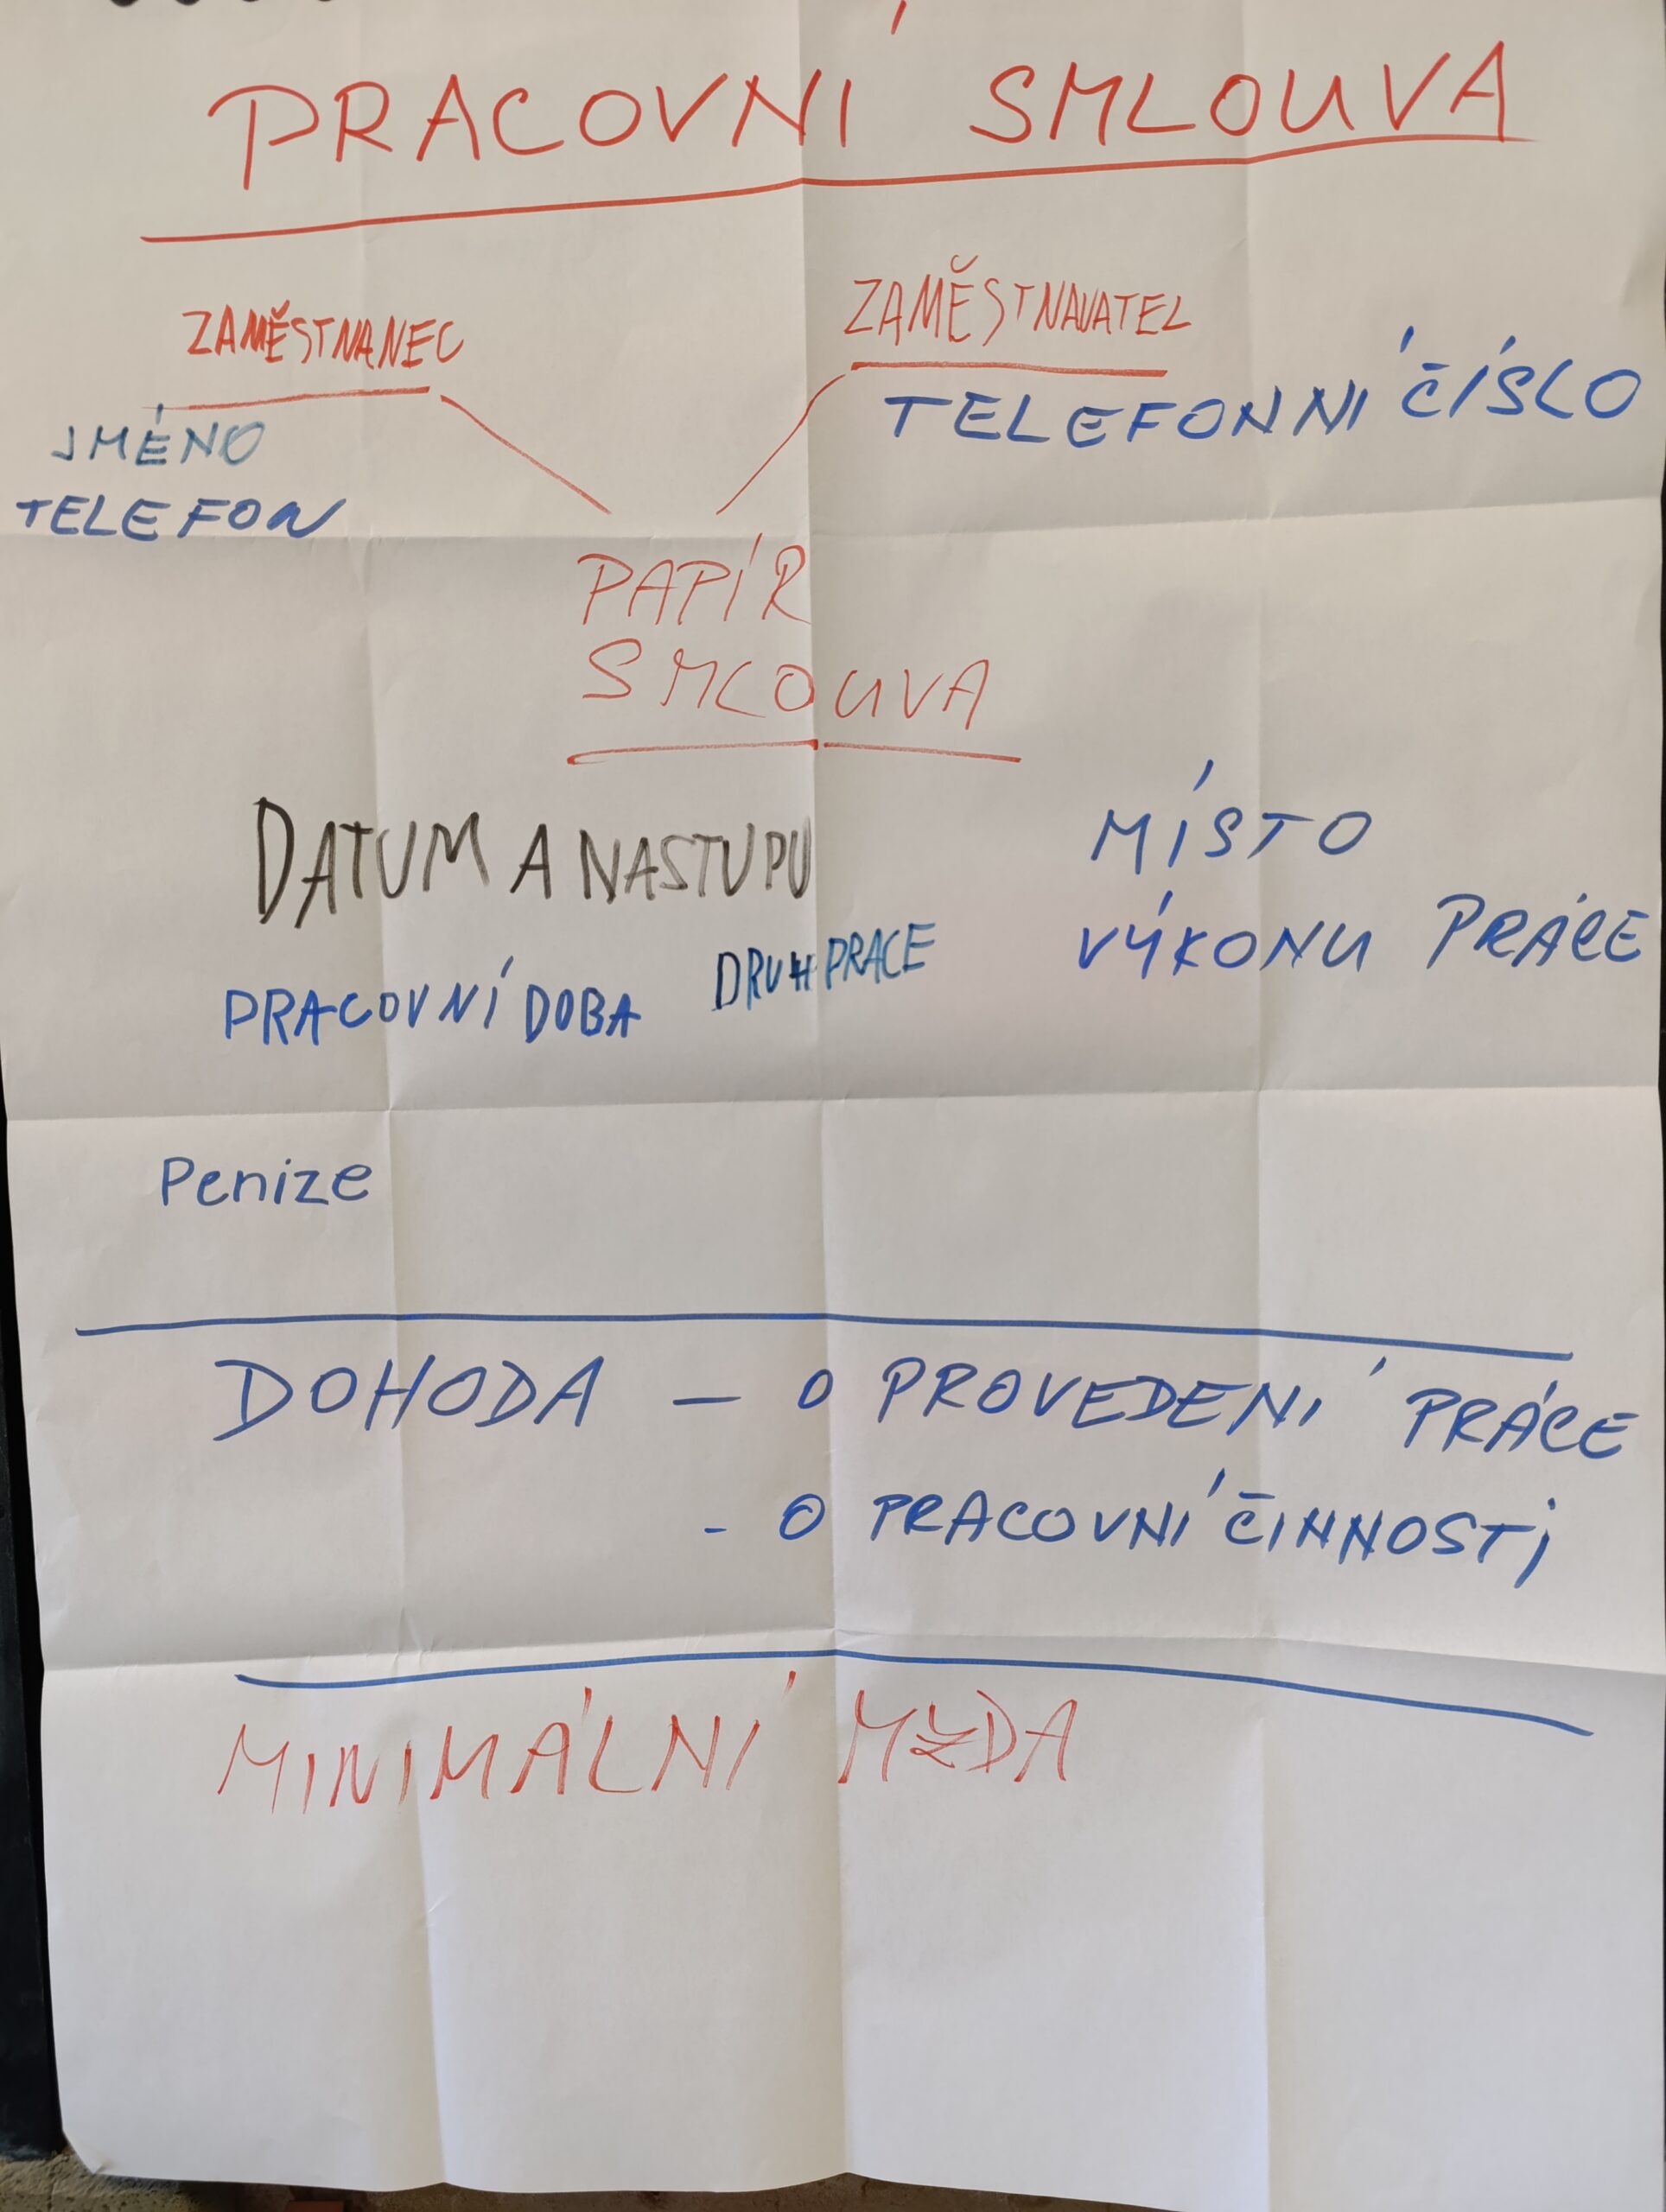 PRACOVNÍ SMLOUVA
ZAMĚSTNANEC
ZAMĚSTNAVATEL
JMÉNO
TELEFON
TELEFONNI ČÍSLO
PAPÍR
SMLOUVA
DATUM A NASTUPU
MÍSTO
VÝKONU PRÁCE
PRACOVNÍ DOBA
DRUH PRACE
Penize
DOHODA – O PROVEDENÍ PRÁCE
- O PRACOVNÍ ČINNOSTI
MINIMÁLNÍ MZDA